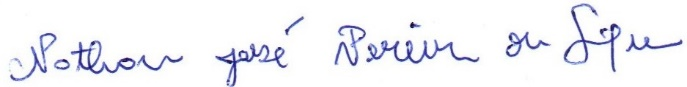 Nathan José Pereira da Silva